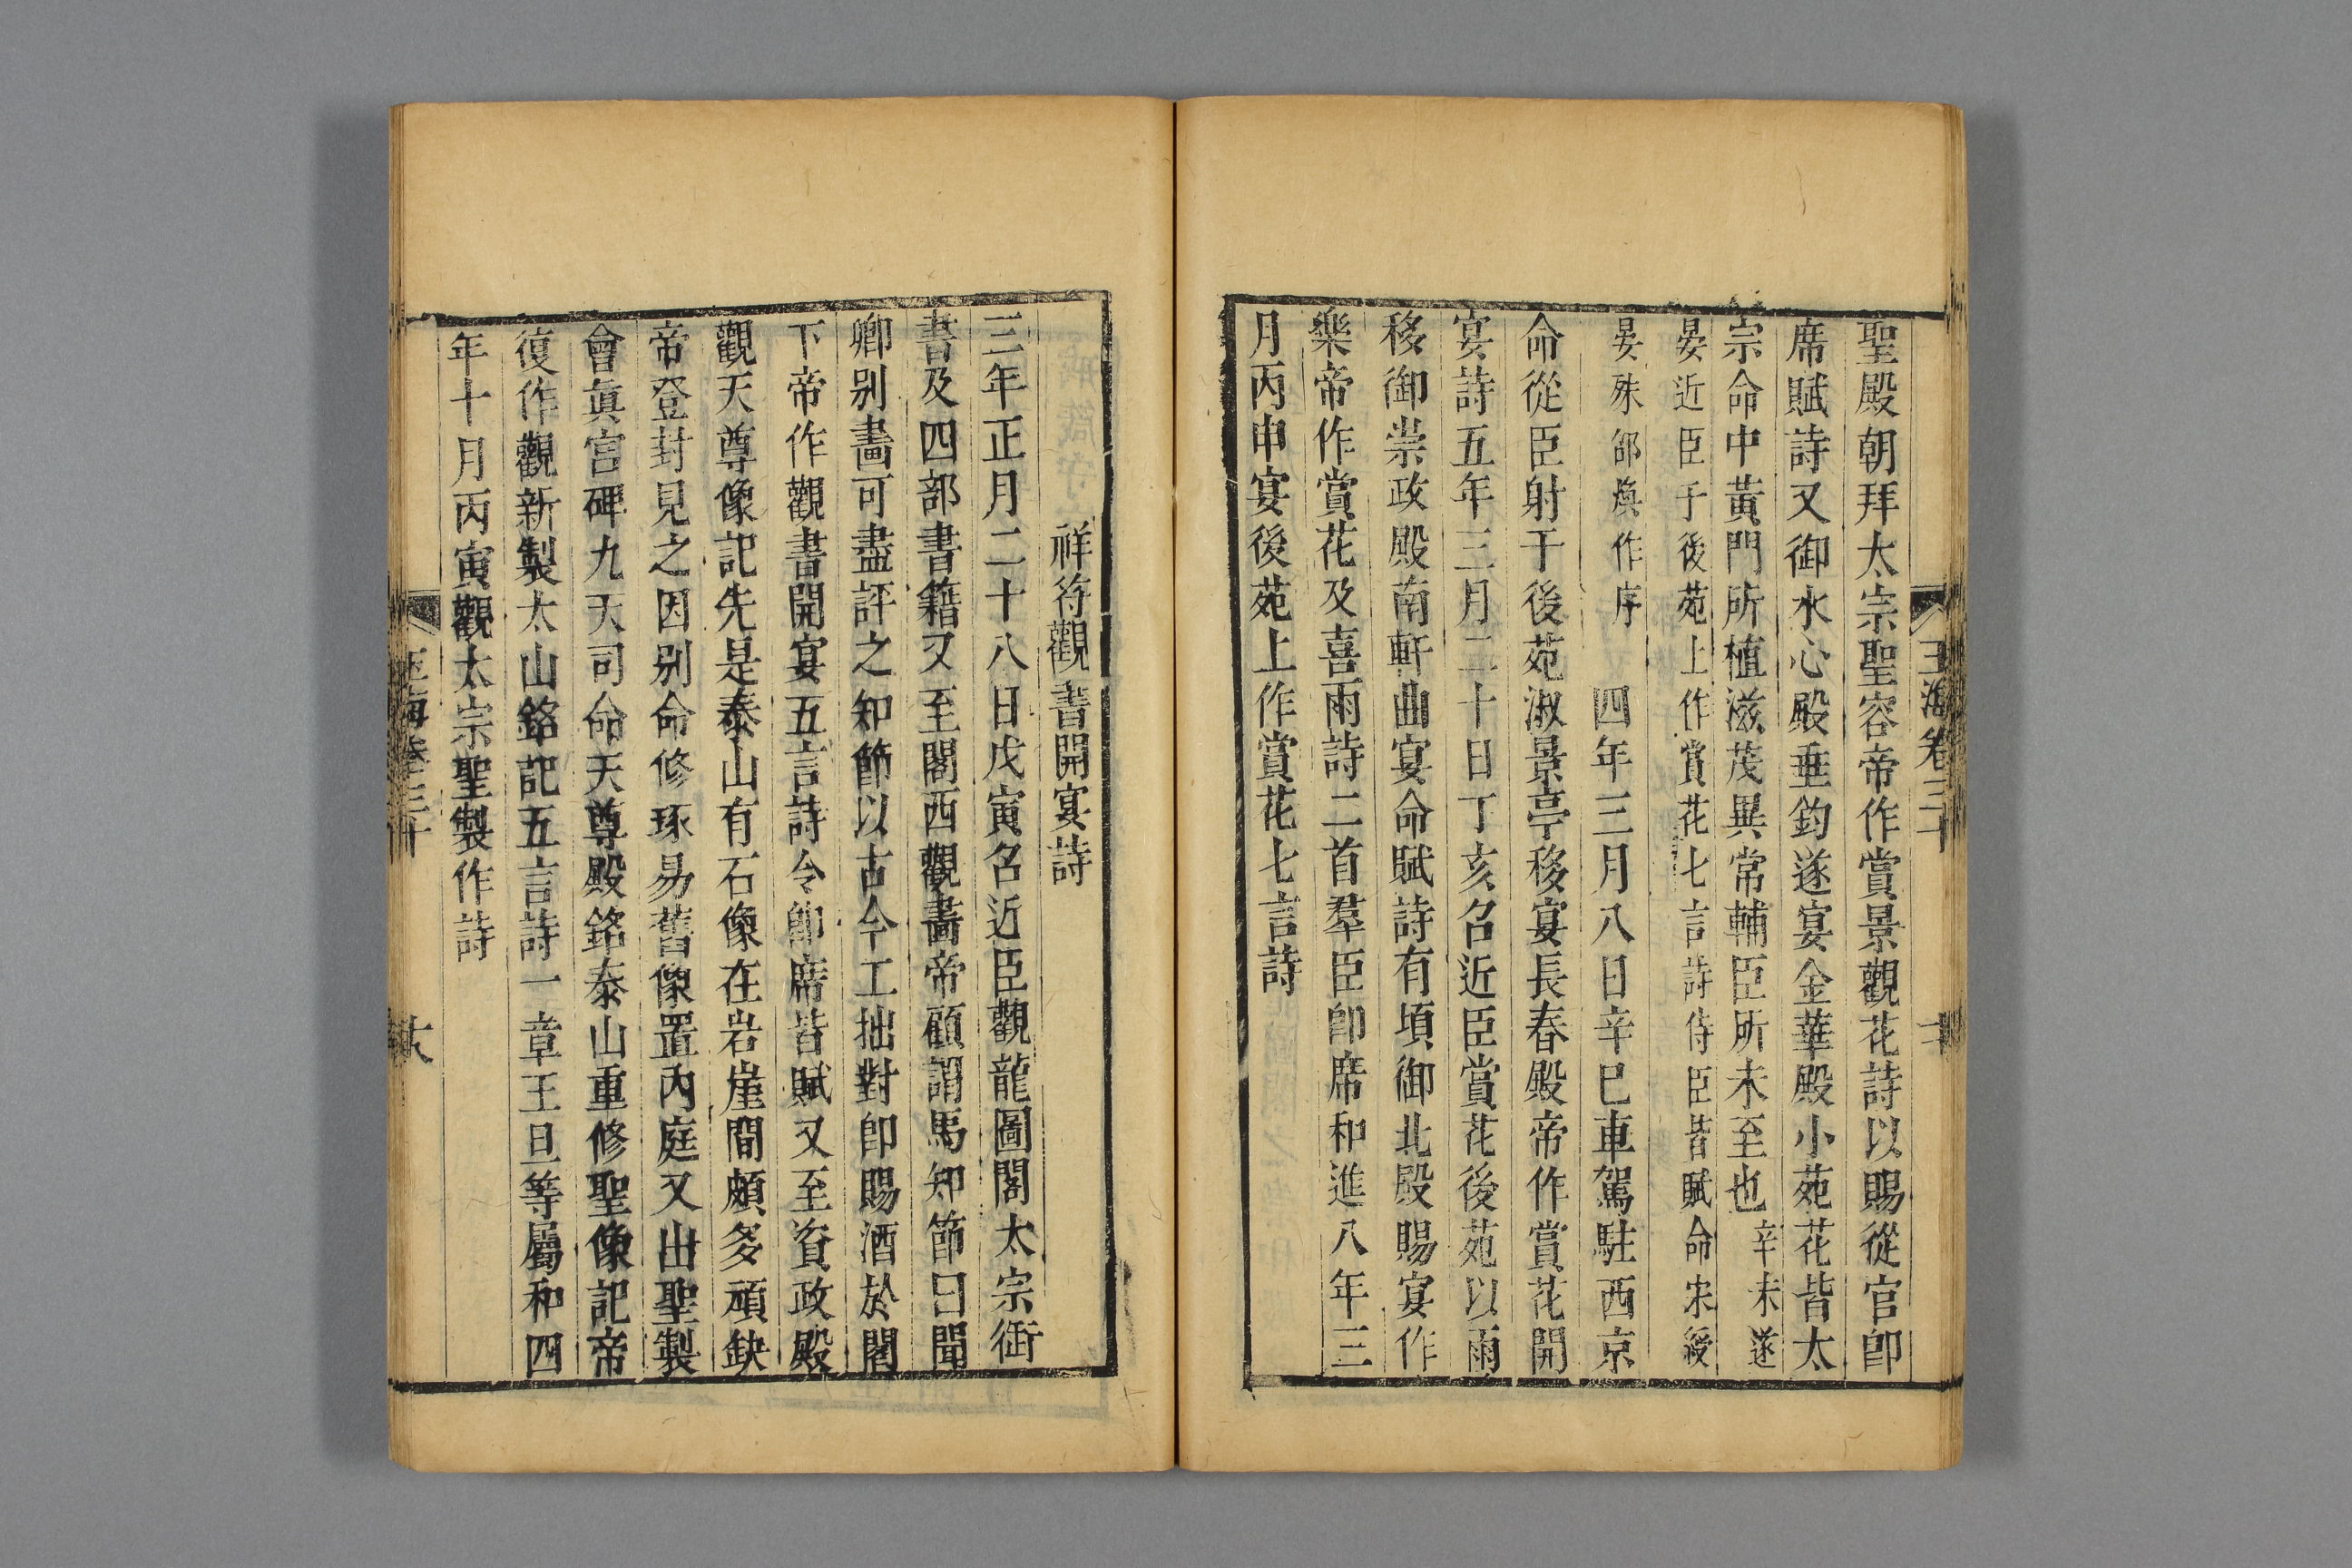 玉海卷三十
聖殿朝拜太宗聖容帝作賞景觀花詩以賜從官卽
席賦詩又御水心殿垂釣遂宴金華殿小苑花皆太
宗命中黃門所植滋茂異常輔臣所未至也辛未遂
宴近臣于後苑上作賞花七言詩侍臣皆賦命宋綬
晏殊邵煥作序　四年三月八日辛巳車駕駐西京
命從臣射于後苑淑景亭移宴長春殿帝作賞花開
宴詩五年三月二十日丁亥召近臣賞花後苑以雨
移御崇政殿南軒曲宴命賦詩有頃御北殿賜宴作
樂帝作賞花及喜雨詩二首羣臣卽席和進八年三
月丙申宴後苑上作賞花七言詩
祥符觀書開宴詩
三年正月二十八日戊寅召近臣觀龍圖閣太宗御
書及四部書籍又至閣西觀畵帝顧謂馬知節曰聞
卿别畵可盡評之知節以古今工拙對卽賜酒於閣
下帝作觀書開宴五言詩令卽席皆賦又至資政殿
觀天尊像記先是泰山有石像在岩崖間頗多頑缺
帝登封見之因别命修琢易舊像置內庭又出聖製
會眞宮碑九天司命天尊殿銘泰山重修聖像記帝
復作觀新製太山銘記五言詩一章王旦等屬和四
年十月丙寅觀太宗聖製作詩
玉海卷三十
六